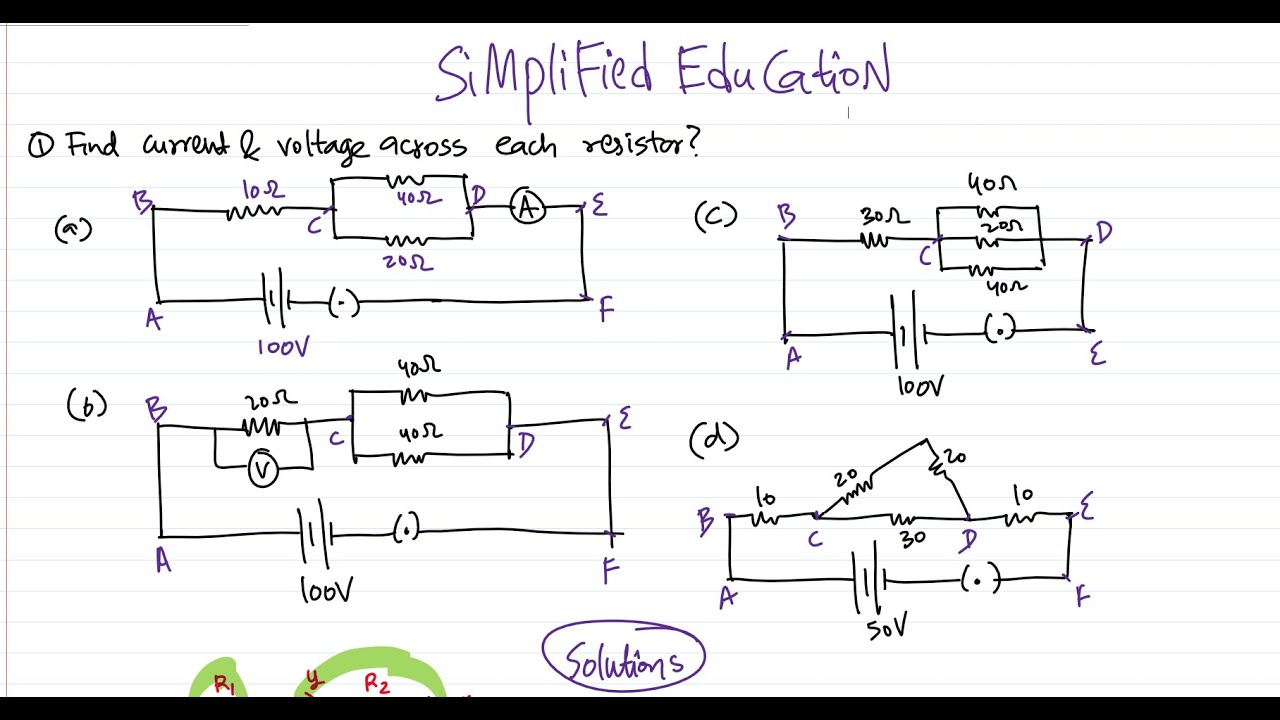 SiMpliFied EduCatioN
① Find current & voltage across each resistor?
(a)
B
10Ω
C
40Ω
20Ω
D
A
E
A
100V
F
(b)
B
20Ω
V
C
40Ω
40Ω
D
E
A
100V
F
(c)
B
30Ω
C
40Ω
20Ω
40Ω
D
A
100V
E
(d)
B
10
C
20
20
30
D
10
E
A
50V
F
Solutions
R1
y
R2